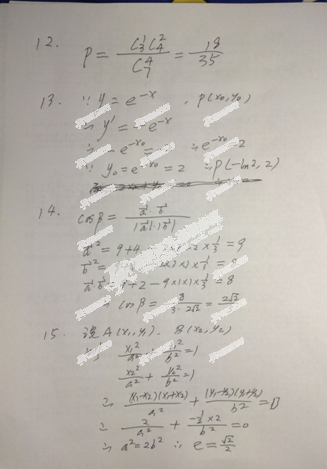 12. P = C₃¹C₄² / C₇⁴ = 18/35
13. ∵ y = e^{-x} , P(x₀, y₀)
∴ y' = -e^{-x}
∴ -e^{-x₀} = ∴ e^{-x₀} = 2
y₀ = e^{-x₀} = 2 ∴ P(-ln2, 2)
14. cosβ = a⃗·b⃗ / |a⃗|·|b⃗|
a⃗² = 9+4- ×1/3 = 9
b⃗² = ×1/3 = 8
a⃗·b⃗ = 9+2-9×1×1×1/3 = 8
∴ cosβ = 8 / 3·2√2 = 2√2/3
15. 设 A(x₁, y₁). B(x₂, y₂)
x₁²/a² + y₁²/b² = 1
x₂²/a² + y₂²/b² = 1
∴ (x₁-x₂)(x₁+x₂)/a² + (y₁-y₂)(y₁+y₂)/b² = 0
∴ 2/a² + -½×2/b² = 0
∴ a² = 2b² ∴ e = √2/2